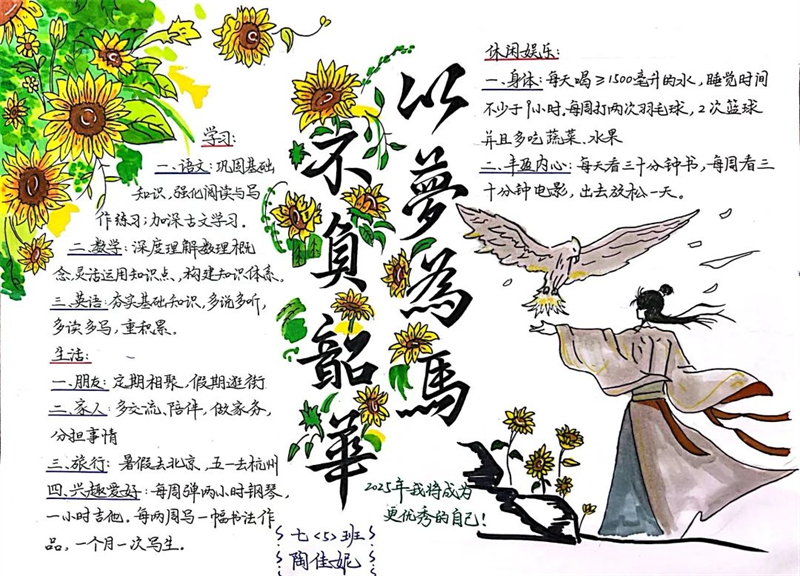 以夢為馬
不負韶華
学习:
一、语文:巩固基础
知识,强化阅读与写
作练习;加深古文学习。
二、数学:深度理解数理概
念.灵活运用知识点,构建知识体系。
三、英语:夯实基础知识,多说多听,
多读多写,重积累。
生活:
一、朋友:定期相聚、假期逛街
二、家人:多交流、陪伴,做家务,
分担事情
三、旅行:暑假去北京,五一去杭州
四、兴趣爱好:每周弹两小时钢琴,
一小时吉他。每两周写一幅书法作
品,一个月一次写生。
休闲娱乐:
一、身体:每天喝≥1500毫升的水,睡觉时间
不少于9小时,每周打两次羽毛球,2次篮球
并且多吃蔬菜、水果
二、丰盈内心:每天看三十分钟书,每周看三
十分钟电影,出去放松一天。
2025年我将成为
更优秀的自己!
七<5>班
陶佳妮